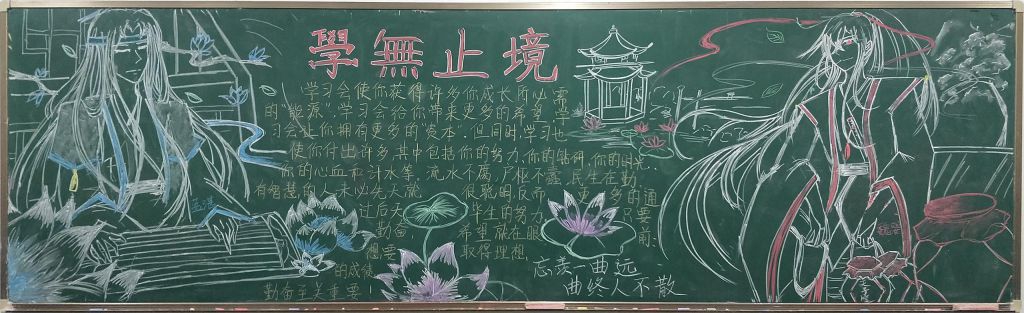 學無止境
学习会使你获得许多你成长所必需
的“能源”,学习会给你带来更多的希望,学
习会让你拥有更多的“资本”.但同时,学习也
使你付出许多,其中包括你的努力,你的钻研,你的时光,
你的心血和汗水等。流水不腐,户枢不蠹,民生在勤
有智慧的人未必先天就 很聪明,反而 更多的通
过后天 毕生的努力 只要
勤奋 希望就在眼前:
想要 取得理想
的成绩
勤奋至关重要!
忘羡一曲远
曲终人不散
蓝湛
魏婴